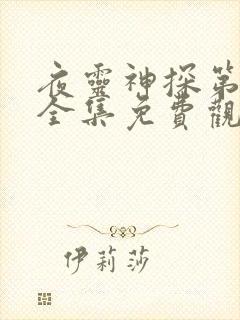 夜靈神探第
全集免費觀
伊莉莎